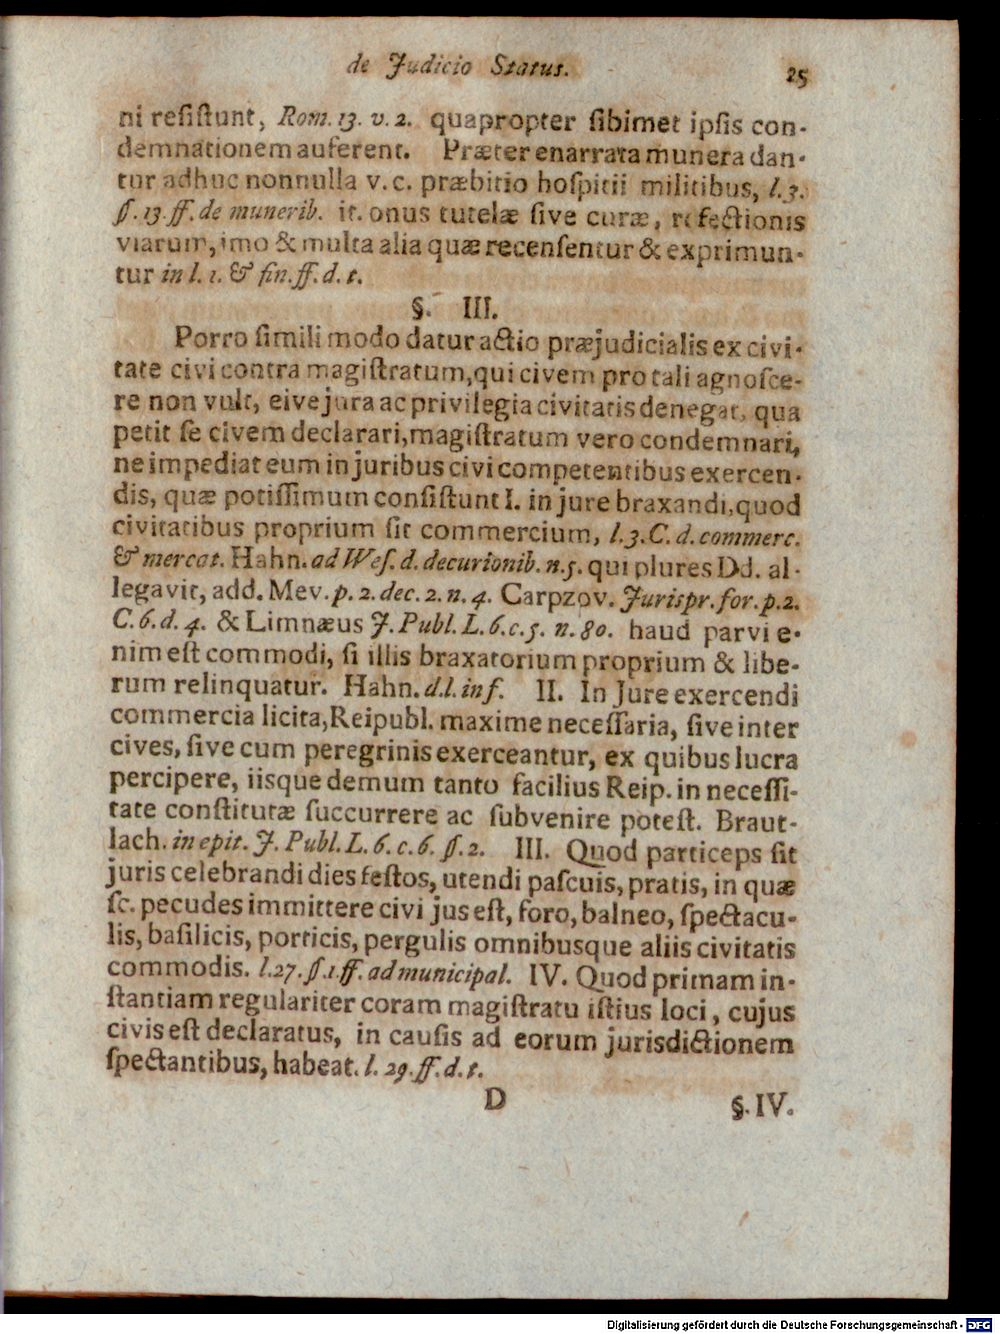 de Judicio Status. 25
ni resiſtunt, Rom. 13. v. 2. quapropter ſibimet ipſis con-
demnationem auferent. Præter enarrata munera dan-
tur adhuc nonnulla v. c. præbitio hoſpitii militibus, l. 3.
ſ. 13. ff. de munerib. it. onus tutelæ ſive curæ, refectionis
viarum, imo & multa alia quæ recenſentur & exprimun-
tur in l. 1. & fin. ff. d. t.
§. III.
Porro ſimili modo datur actio præjudicialis ex civi-
tate civi contra magiſtratum, qui civem pro tali agnoſce-
re non vult, eive jura ac privilegia civitatis denegat, qua
petit ſe civem declarari, magiſtratum vero condemnari,
ne impediat eum in juribus civi competentibus exercen-
dis, quæ potiſſimum conſiſtunt I. in jure braxandi, quod
civitatibus proprium ſit commercium, l. 3. C. d. commerc.
& mercat. Hahn. ad Weſ. d. decurionib. n. 5. qui plures Dd. al-
legavit, add. Mev. p. 2. dec. 2. n. 4. Carpzov. Jurispr. for. p. 2.
C. 6. d. 4. & Limnæus J. Publ. L. 6. c. 5. n. 80. haud parvi e-
nim eſt commodi, ſi illis braxatorium proprium & libe-
rum relinquatur. Hahn. d. l. inf. II. In Jure exercendi
commercia licita, Reipubl. maxime neceſſaria, ſive inter
cives, ſive cum peregrinis exerceantur, ex quibus lucra
percipere, iisque demum tanto facilius Reip. in neceſſi-
tate conſtitutæ ſuccurrere ac ſubvenire poteſt. Braut-
lach. in epit. J. Publ. L. 6. c. 6. ſ. 2. III. Quod particeps ſit
juris celebrandi dies feſtos, utendi paſcuis, pratis, in quæ
ſc. pecudes immittere civi jus eſt, foro, balneo, ſpectacu-
lis, baſilicis, porticis, pergulis omnibusque aliis civitatis
commodis. l. 27. ſ. 1. ff. ad municipal. IV. Quod primam in-
ſtantiam regulariter coram magiſtratu iſtius loci, cujus
civis eſt declaratus, in cauſis ad eorum jurisdictionem
ſpectantibus, habeat. l. 29. ff. d. t.
D §. IV.
Digitalisierung gefördert durch die Deutsche Forschungsgemeinschaft - DFG